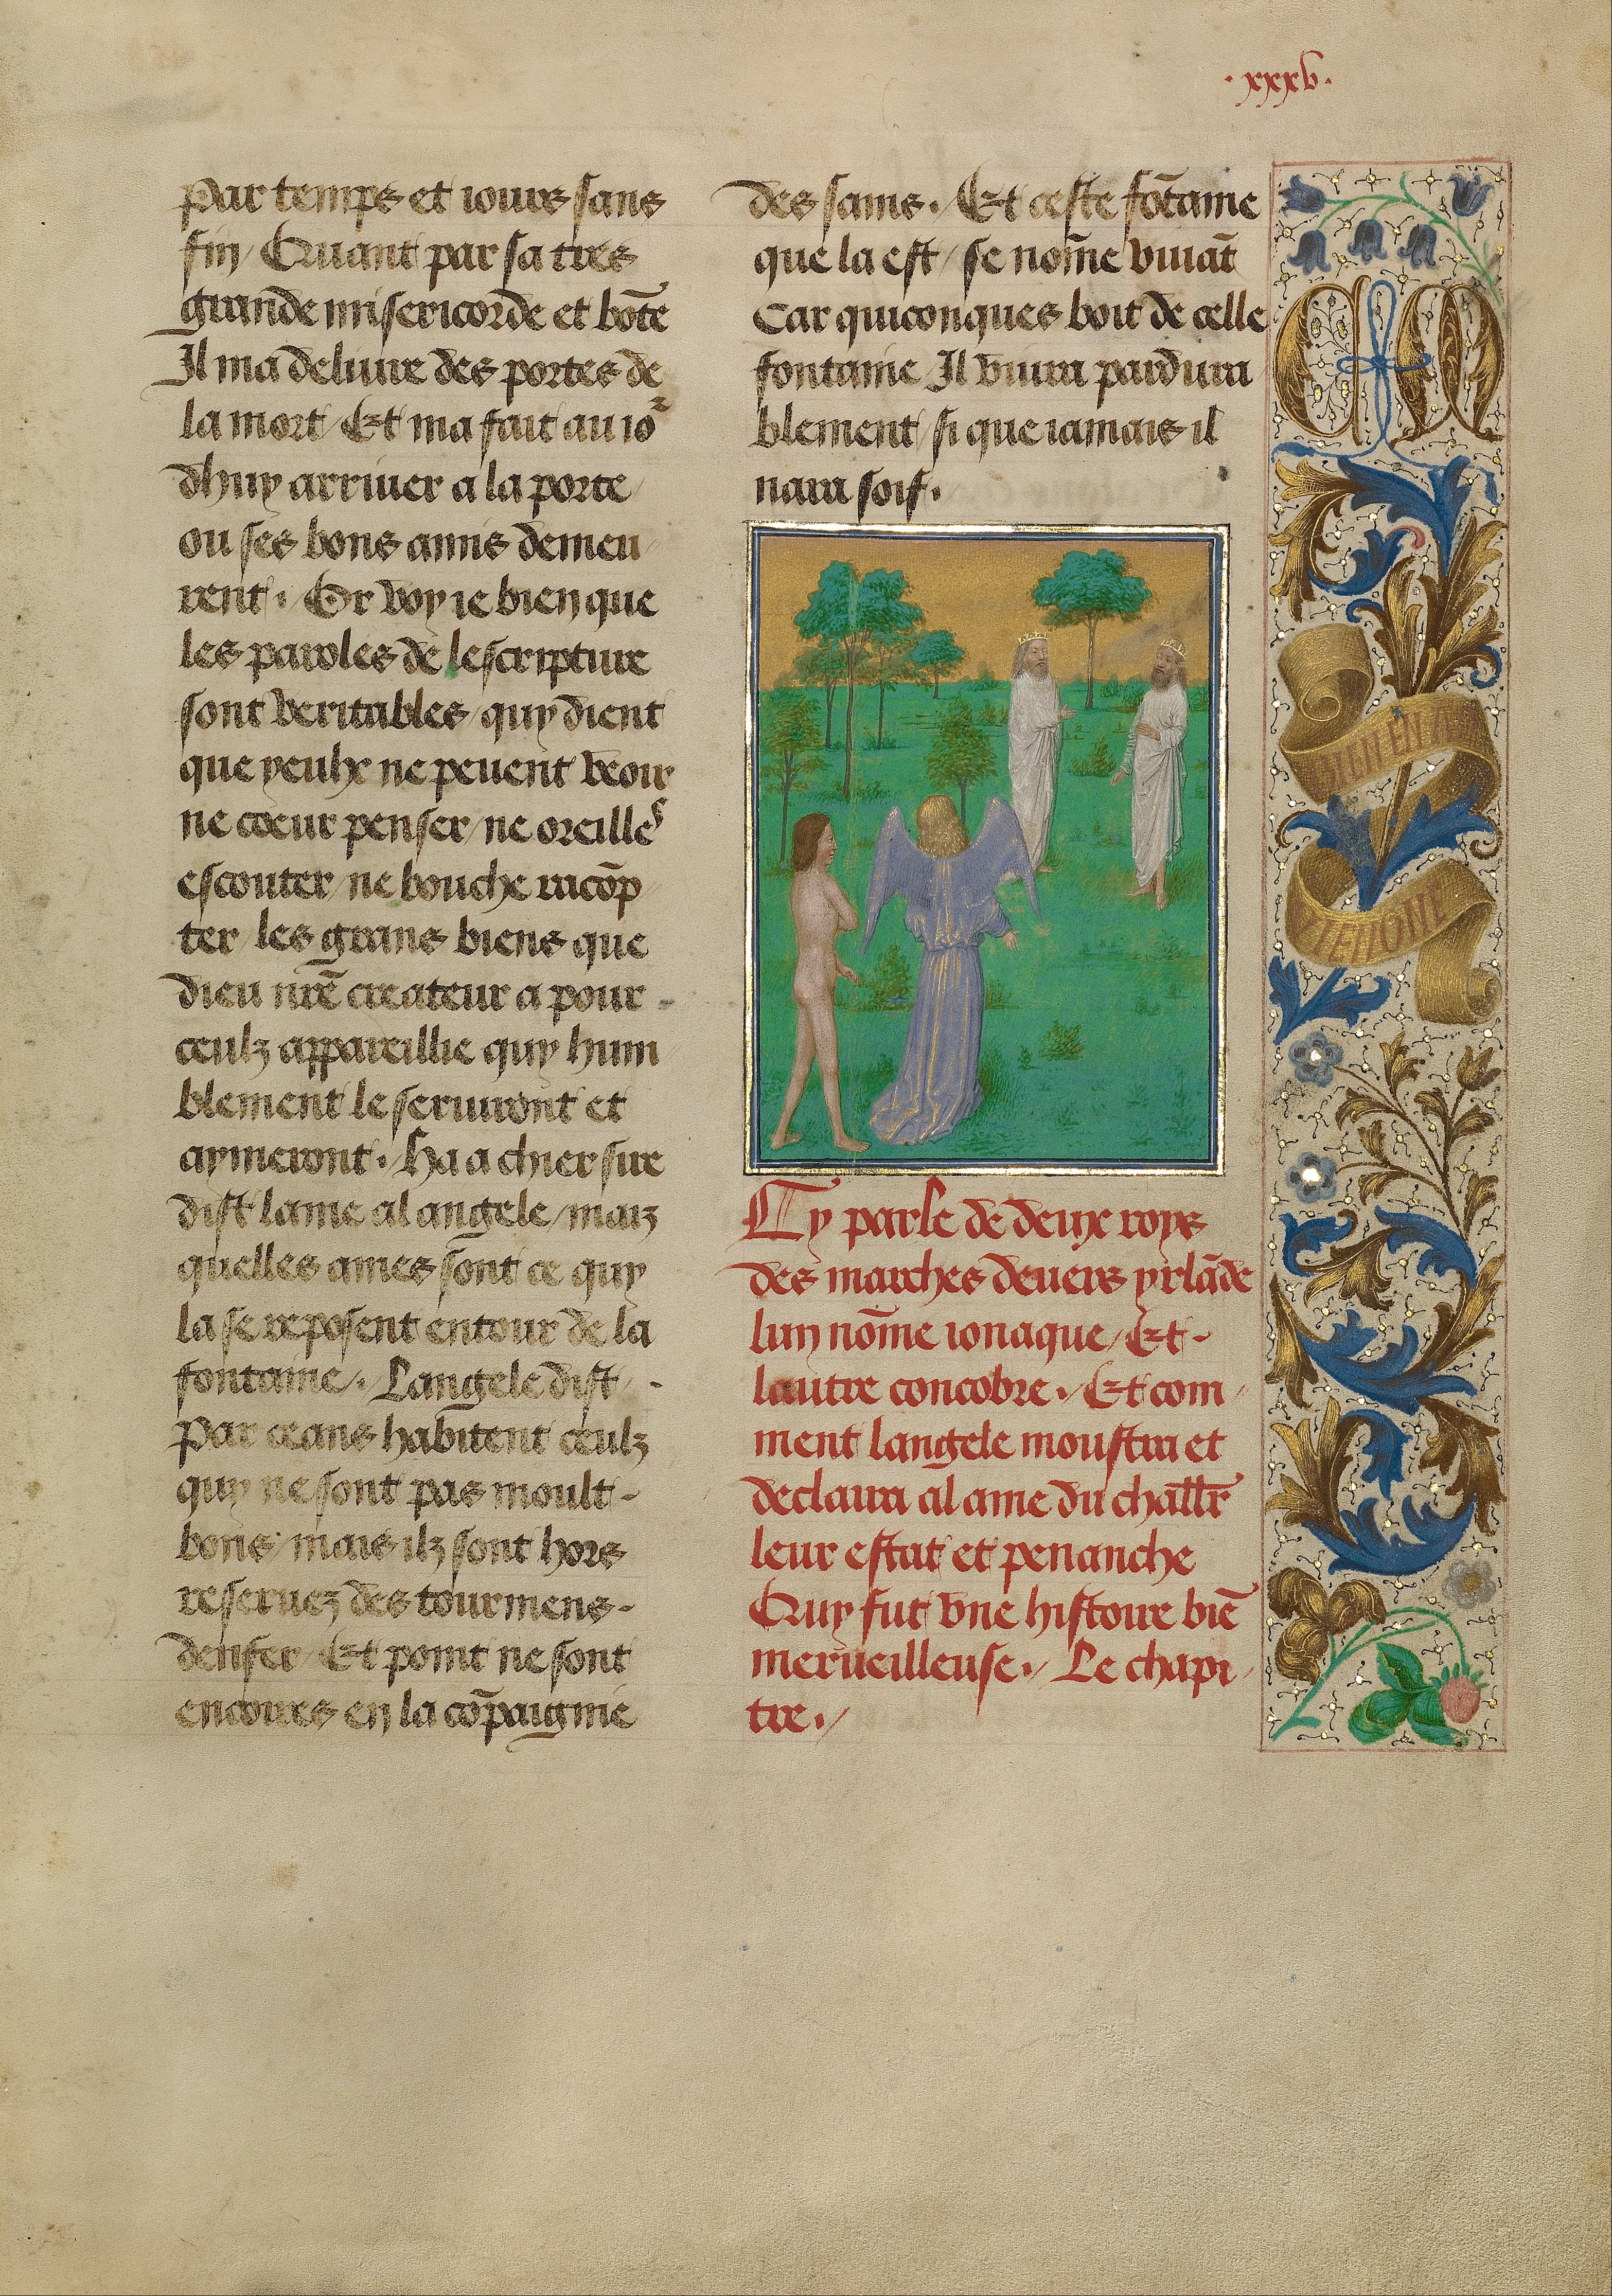 .xxxv.
par temps et iours sans
fin / Quant par sa tres
grande misericorde et bōte
Il ma deliure des portes de
la mort / Et ma fait au io᷑
dhuy arriuer a la porte
ou ses bons amis demeu
rent . / Or voy ie bien que
les paroles de lescripture
sont veritables / quy dient
que yeulx ne peuent veoir
ne coeur penser / ne oreilles
escouter / ne bouche racōp
ter / les grans biens que
dieu nr̄e createur a pour
ceulz appareillie quy hum
blement le seruiront et
aymeront . / Ha a chier sire
dist lame al angele / maiz
quelles ames sont ce quy
la se reposent entour de la
fontaine / . Langele dist /
Par ceans habitent ceulz
quy ne sont pas moult -
bons / mais ilz sont hors
reseruez des tourmens -
denfer / Et point ne sont
encoires en la cōpaignie
des sains . / Et ceste fōtaine
que la est / se nōme viuāt
Car quiconques boit de celle
fontaine / Il viura pardura
blement / si que iamais il
nara soif .
Cy parle de deux roys
des marches deuers yrlāde
lun nōme ionaque / Et -
lautre concobre . / Et com /
ment langele moustra et
declaira al ame du chal̄lr
leur estat et penanche
Quy fut vne histoire biē
merueilleuse . / Le chapi /
tre . /
CM
BIEN EN